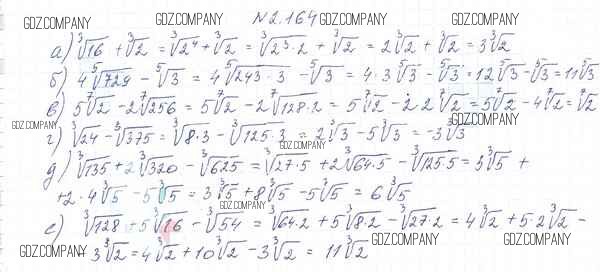 GDZ.COMPANY №2.164 GDZ.COMPANY GDZ.COMPANY
а) ³√16 + ³√2 = ³√2⁴ + ³√2 = ³√2³·2 + ³√2 = 2³√2 + ³√2 = 3³√2
б) 4⁵√729 − ⁵√3 = 4⁵√243·3 − ⁵√3 = 4·3⁵√3 − ⁵√3 = 12⁵√3 − ⁵√3 = 11⁵√3
в) 5⁷√2 − 2⁷√256 = 5⁷√2 − 2⁷√128·2 = 5⁷√2 − 2·2⁷√2 = 5⁷√2 − 4⁷√2 = ⁷√2
GDZ.COMPANY GDZ.COMPANY
г) ³√24 − ³√375 = ³√8·3 − ³√125·3 = 2³√3 − 5³√3 = −3³√3
GDZ.COMPANY
д) ³√135 + 2³√320 − ³√625 = ³√27·5 + 2³√64·5 − ³√125·5 = 3³√5 +
+2·4³√5 − 5³√5 = 3³√5 + 8³√5 − 5³√5 = 6³√5
GDZ.COMPANY
е) ³√128 + 5³√16 − ³√54 = ³√64·2 + 5³√8·2 − ³√27·2 = 4³√2 + 5·2³√2 −
− 3³√2 = 4³√2 + 10³√2 − 3³√2 = 11³√2
GDZ.COMPANY GDZ.COMPANY GDZ.COMPANY